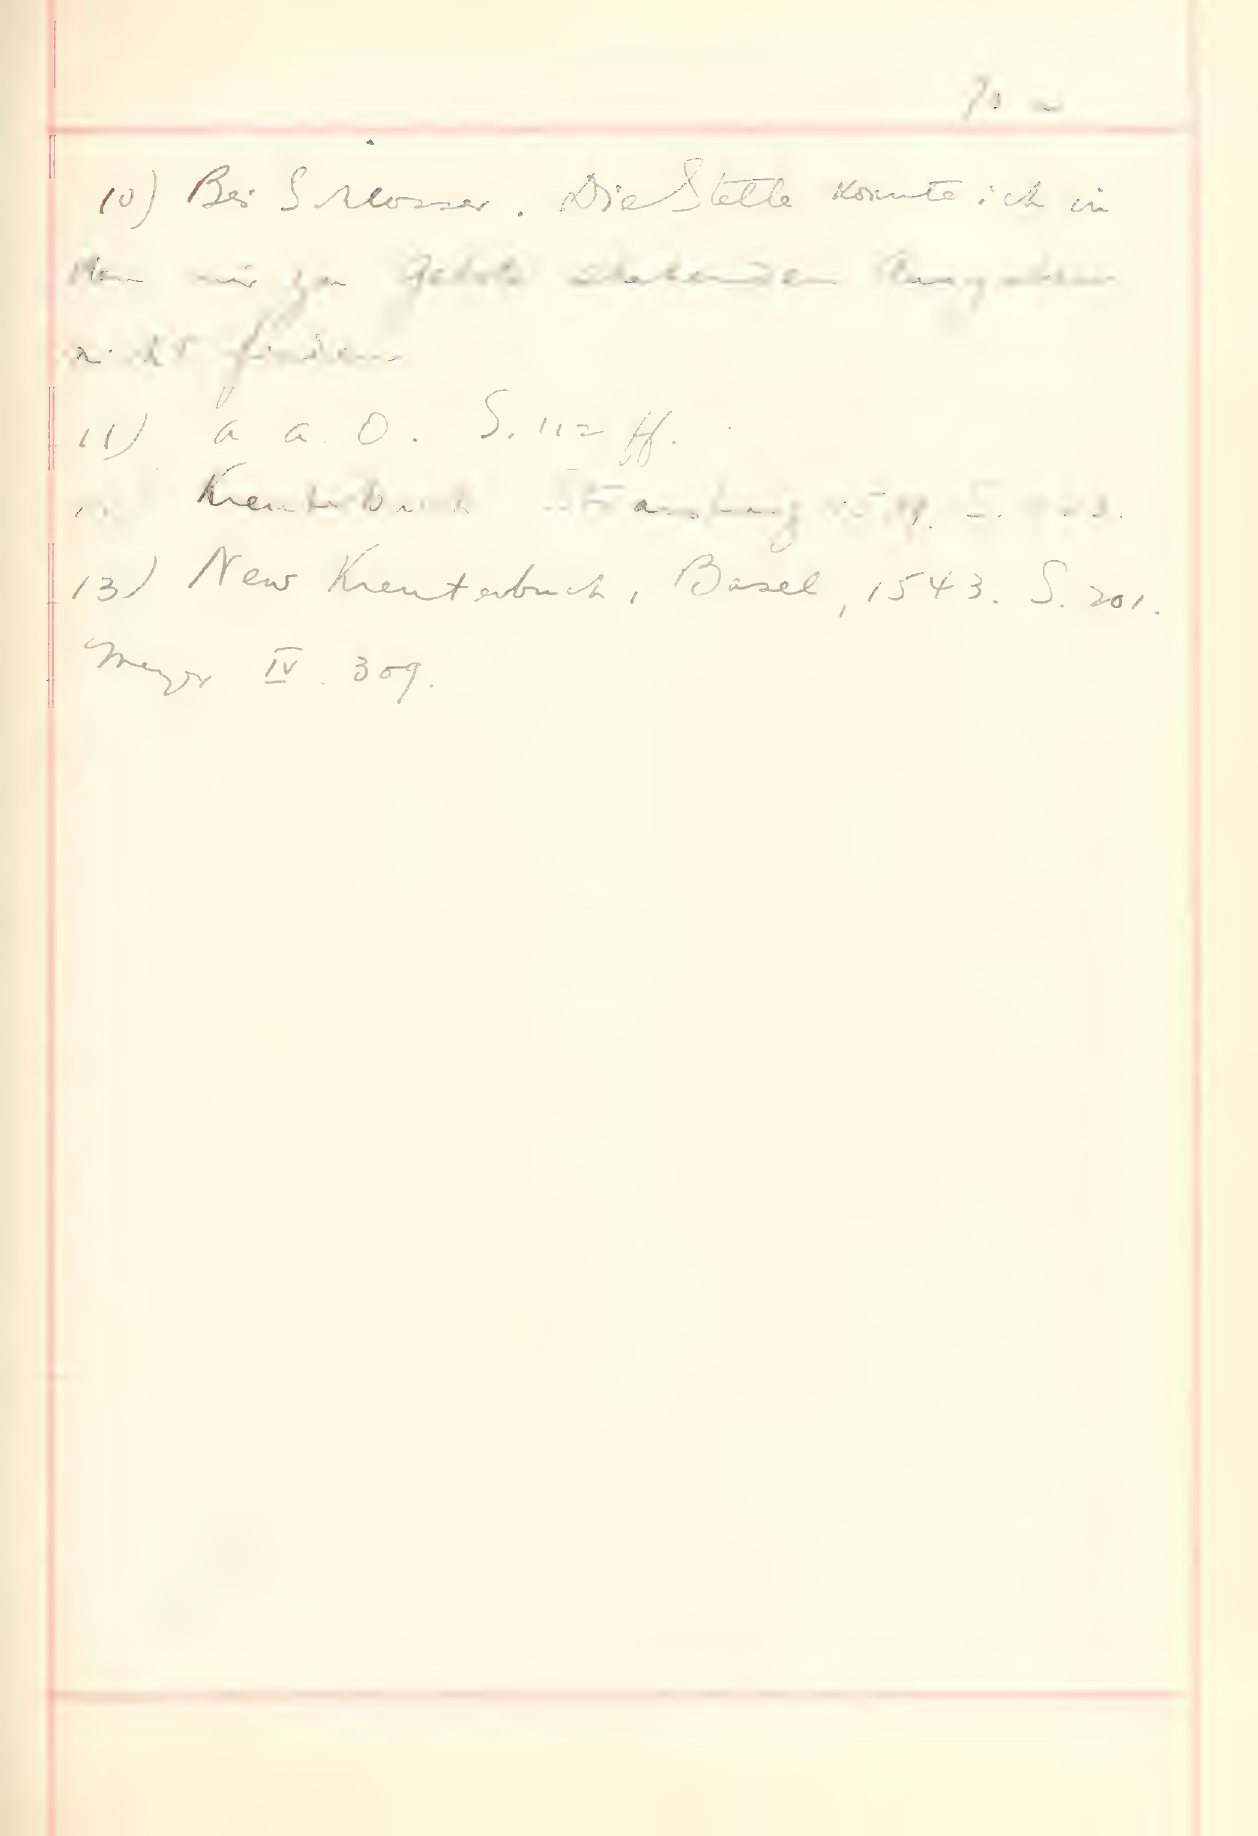 70 a
10) Bei Schlosser. Die Stelle konnte ich in
den mir zu Gebote stehenden Ausgaben
nicht finden
11) a a. O. S. 112 ff.
Kreuterbuch Strassburg
13) New Kreuterbuch, Basel, 1543. S. 201.
Meyer IV. 309.